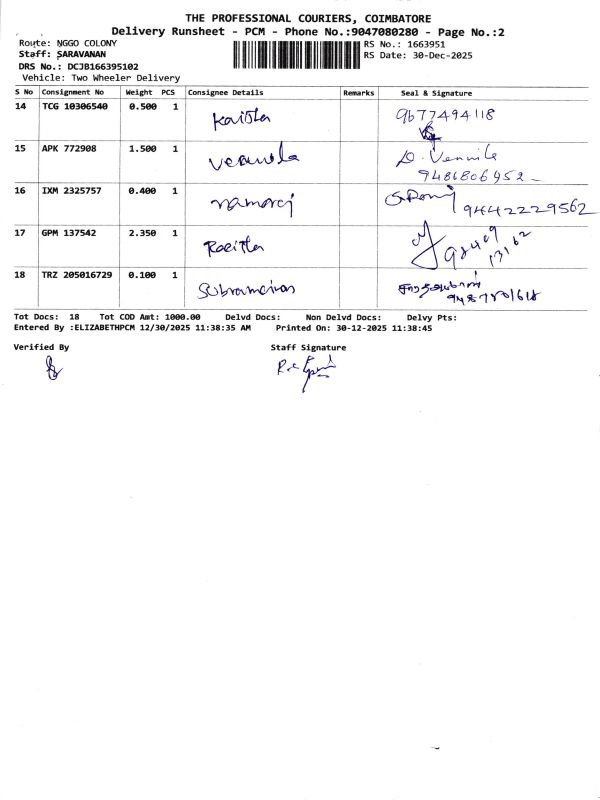 THE PROFESSIONAL COURIERS, COIMBATORE
Delivery Runsheet - PCM - Phone No.:9047080280 - Page No.:2
Route: NGGO COLONY RS No.: 1663951
Staff: SARAVANAN RS Date: 30-Dec-2025
DRS No.: DCJB166395102
Vehicle: Two Wheeler Delivery
S No Consignment No Weight PCS Consignee Details Remarks Seal & Signature
14 TCG 10306540 0.500 1 9677494118
15 APK 772908 1.500 1 D. Vennila
9486806952
16 IXM 2325757 0.400 1 ramaraj 9442229562
17 GPM 137542 2.350 1
18 TRZ 205016729 0.100 1
Tot Docs: 18 Tot COD Amt: 1000.00 Delvd Docs: Non Delvd Docs: Delvy Pts:
Entered By :ELIZABETHPCM 12/30/2025 11:38:35 AM Printed On: 30-12-2025 11:38:45
Verified By Staff Signature